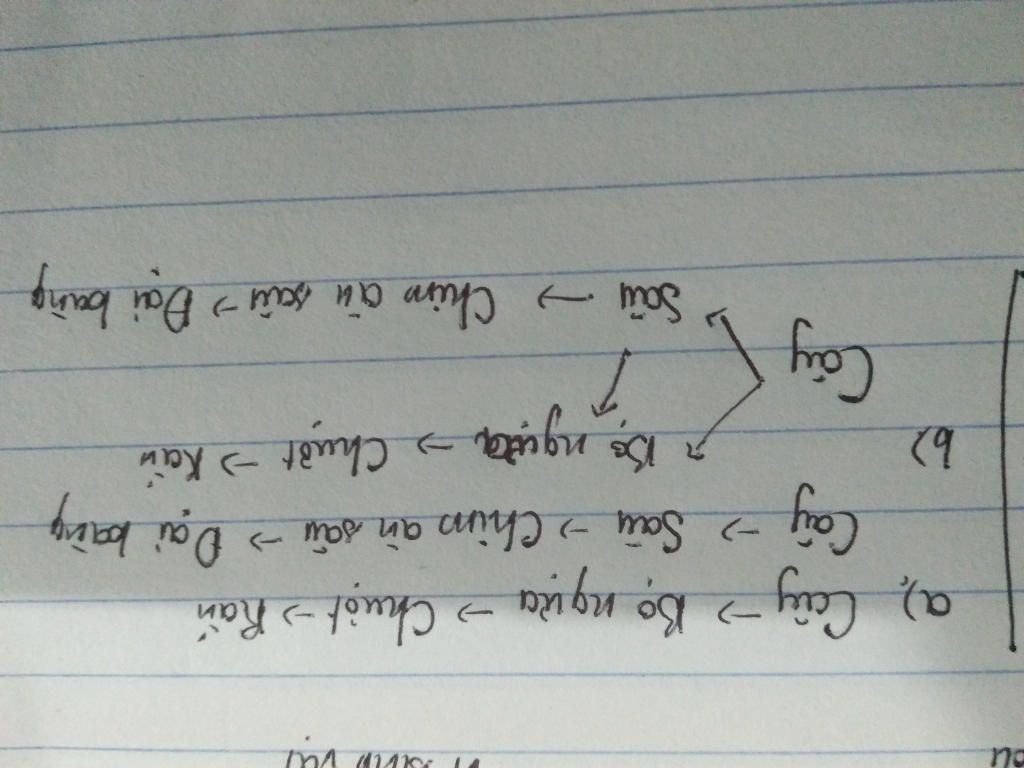 a) Cây → Bọ ngựa → Chuột → Rắn
Cây → Sâu → Chim ăn sâu → Đại bàng
b) Bọ ngựa → Chuột → Rắn
Cây
Sâu → Chim ăn sâu → Đại bàng